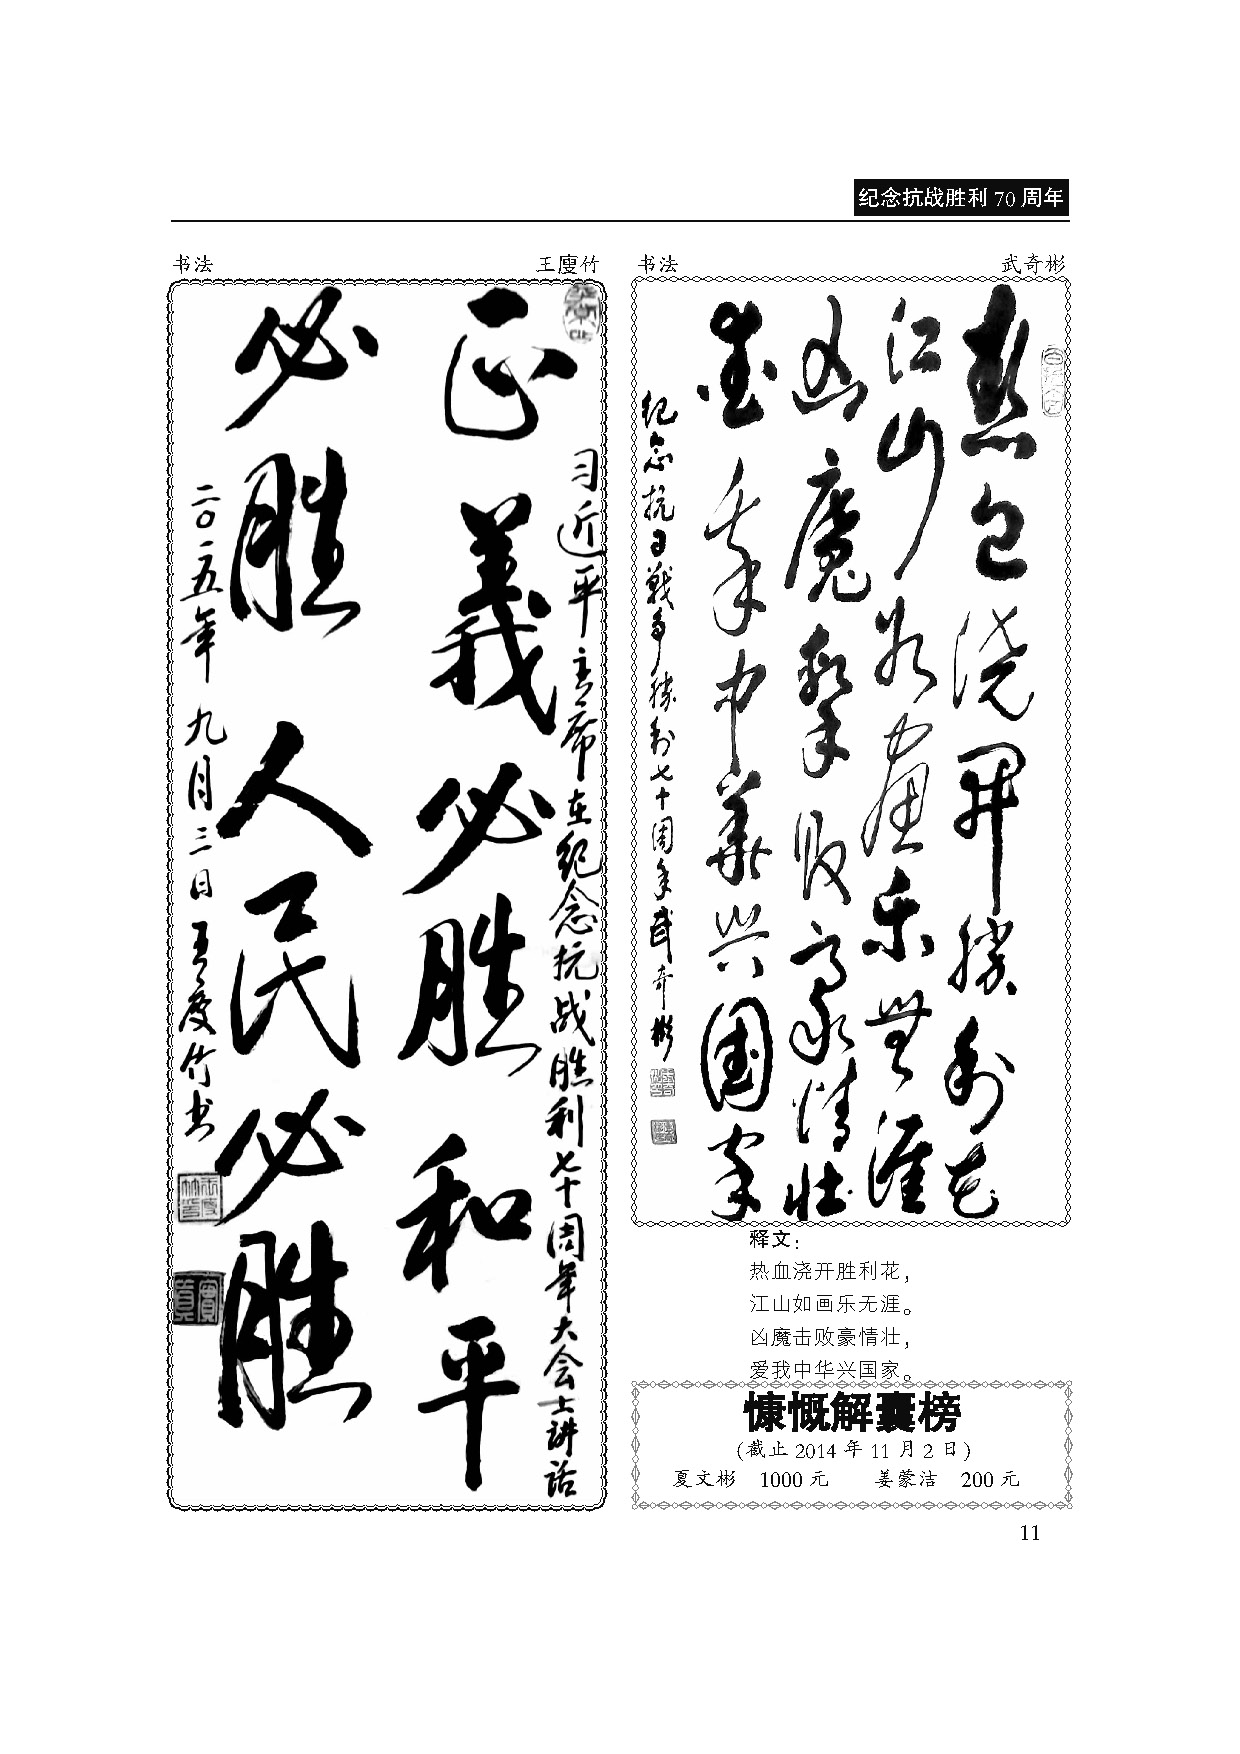 纪念抗战胜利 70 周年
书法 王廋竹
正义必胜和平
必胜人民必胜
习近平主席在纪念抗战胜利七十周年大会上讲话
二〇一五年九月三日王廋竹书
书法 武奇彬
热血浇开胜利花
江山如画乐无涯
凶魔击败豪情壮
爱我中华兴国家
纪念抗日战争胜利七十周年武奇彬
释文：
热血浇开胜利花，
江山如画乐无涯。
凶魔击败豪情壮，
爱我中华兴国家。
慷慨解囊榜
(截止 2014 年 11 月 2 日)
夏文彬 1000 元 姜蒙洁 200 元
11